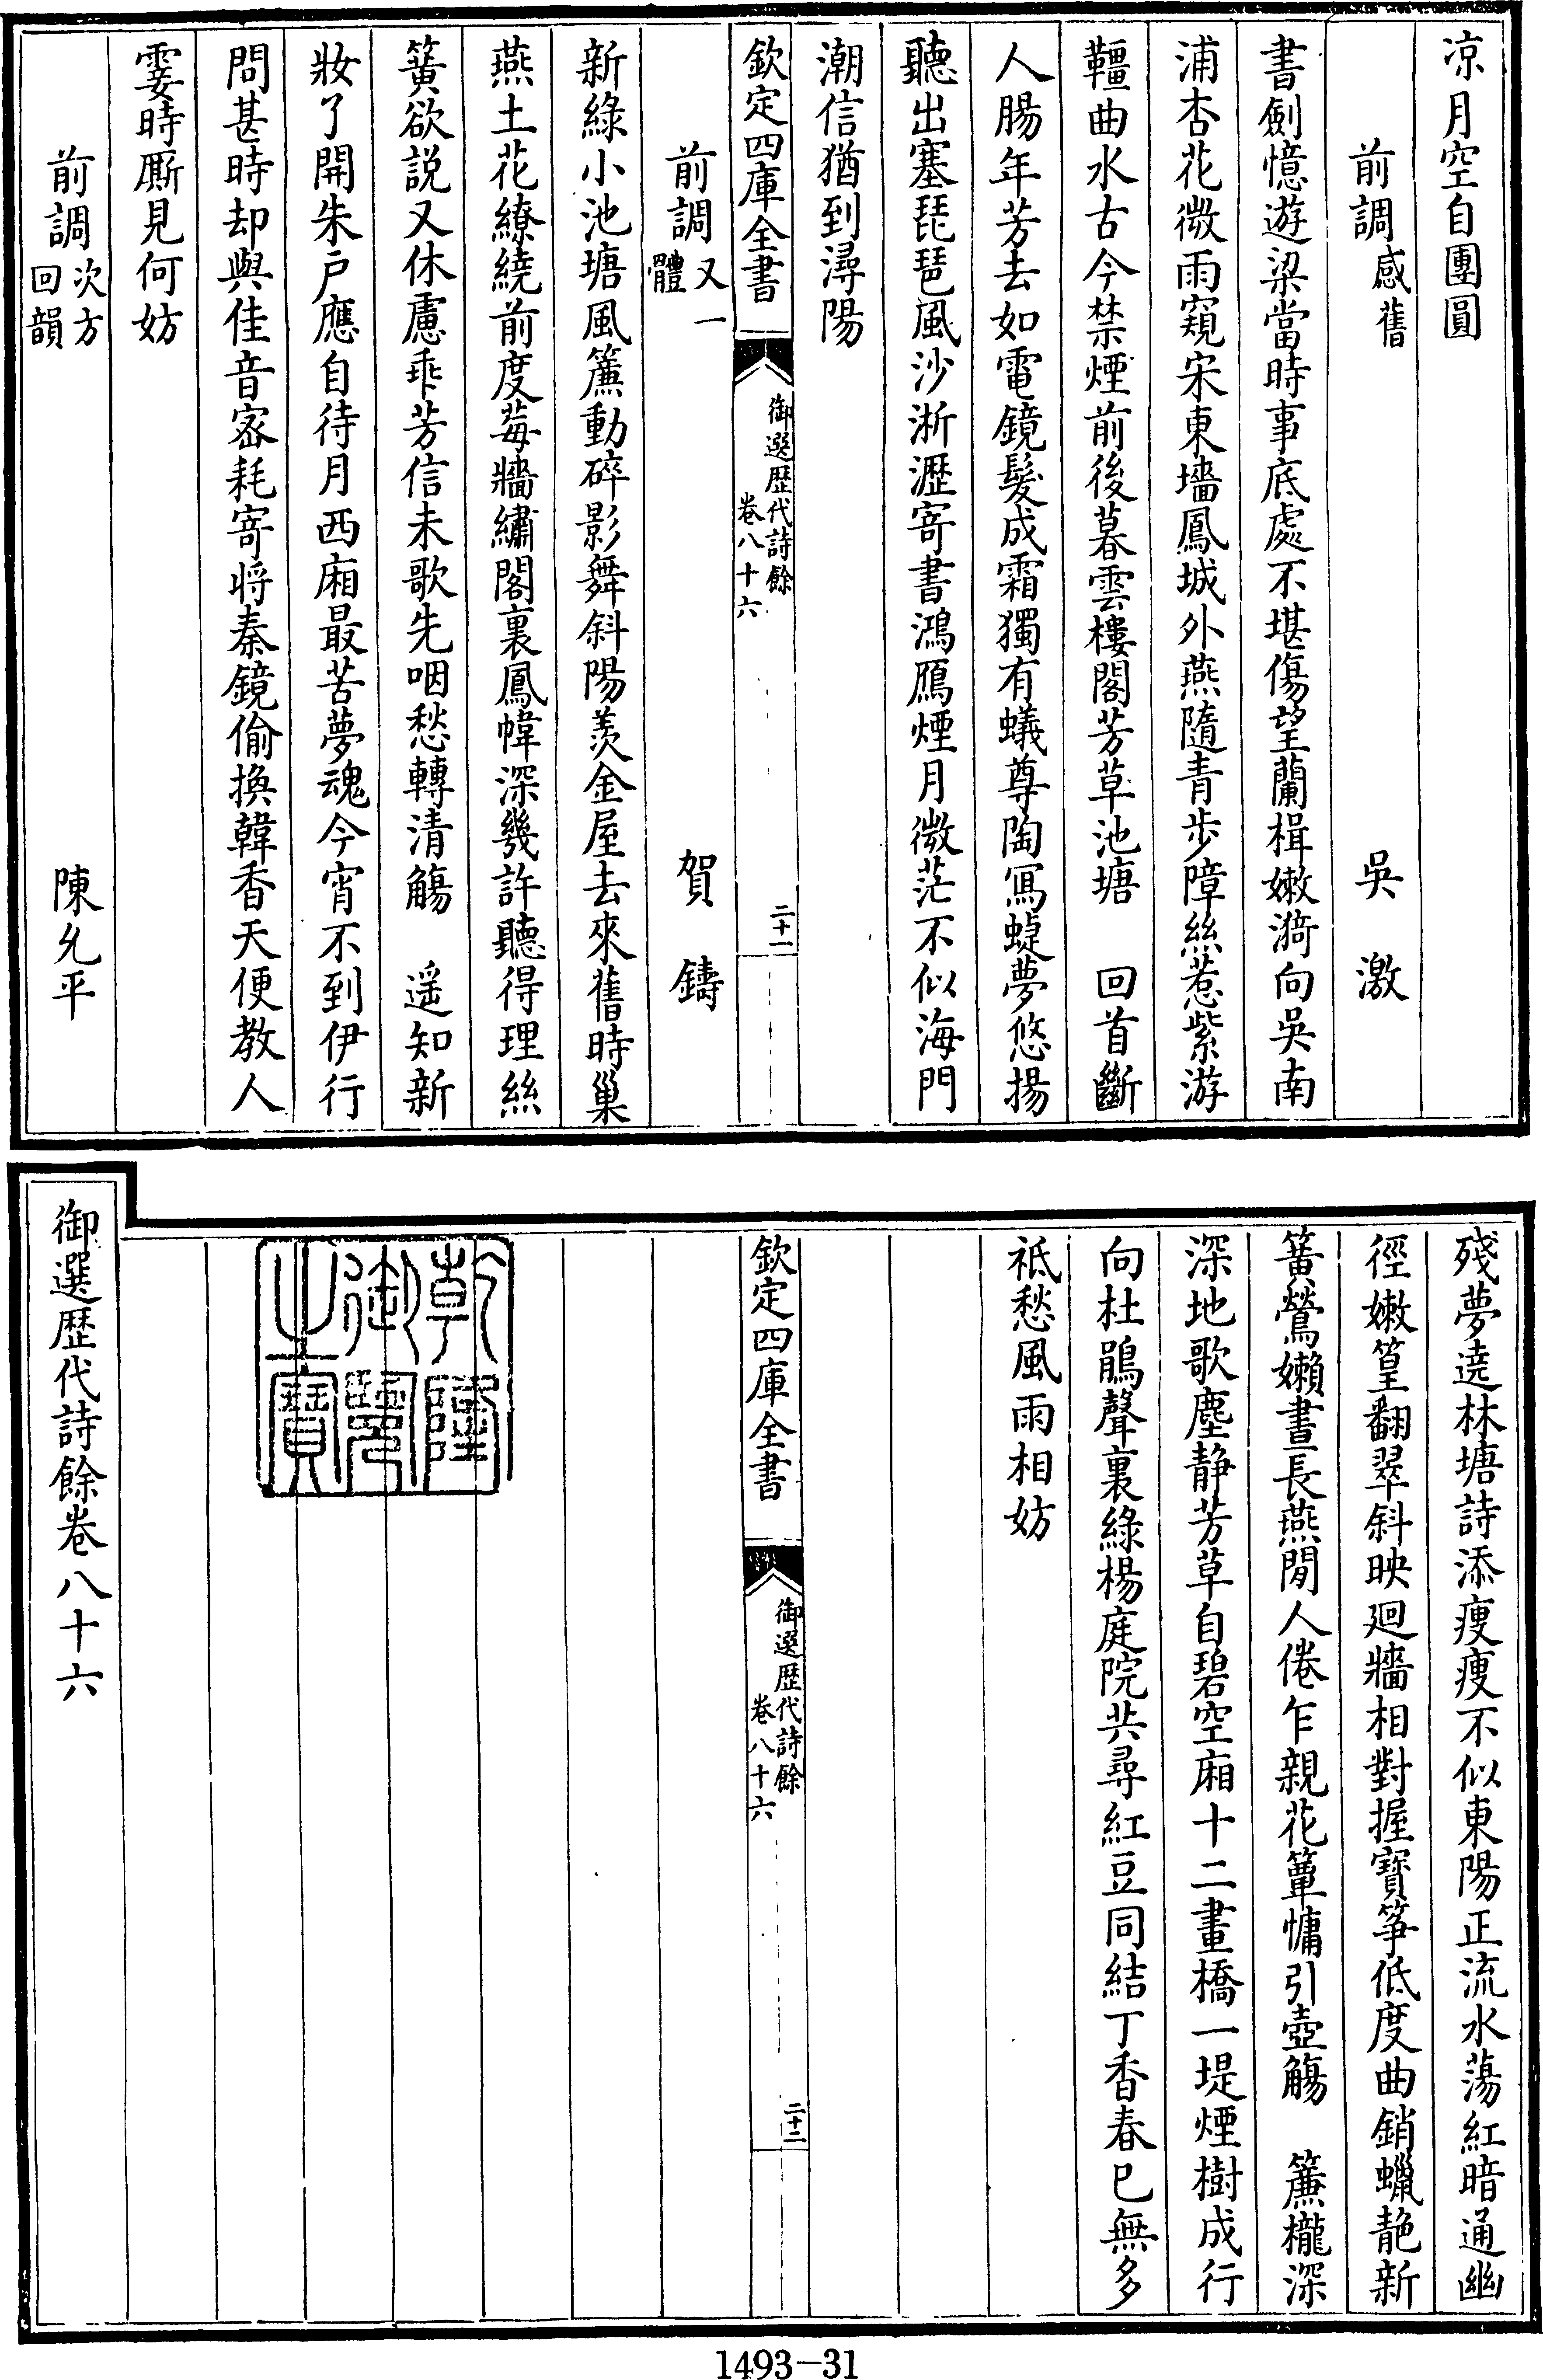 凉月空自團圓
前調感舊　吳激
書劍憶遊梁當時事底處不堪傷望蘭楫嫩漪向吳南
浦杏花微雨窺宋東墻鳳城外燕隨青步障絲惹紫游
韁曲水古今禁煙前後暮雲樓閣芳草池塘　回首斷
人腸年芳去如電鏡髮成霜獨有蟻尊陶寫蜨夢悠揚
聽出塞琵琶風沙淅瀝寄書鴻鴈煙月微茫不似海門
潮信猶到潯陽
欽定四庫全書
御選歴代詩餘
卷八十六
二十一
前調又一體　賀鑄
新綠小池塘風簾動碎影舞斜陽羨金屋去來舊時巢
燕土花繚繞前度莓牆繡閣裏鳳幃深幾許聽得理絲
簧欲説又休慮乖芳信未歌先咽愁轉清觴　遥知新
妝了開朱户應自待月西廂最苦夢魂今宵不到伊行
問甚時却與佳音宻耗寄将秦鏡偷換韓香天便教人
霎時厮見何妨
前調次方回韻　陳允平
殘夢遶林塘詩添瘦瘦不似東陽正流水蕩紅暗通幽
徑嫩篁翻翠斜映廻牆相對握寶箏低度曲銷蠟靘新
簧鶯嬾晝長燕閒人倦乍親花簟慵引壺觴　簾櫳深
深地歌塵静芳草自碧空廂十二畫橋一堤煙樹成行
向杜鵑聲裏綠楊庭院共尋紅豆同結丁香春已無多
祗愁風雨相妨
欽定四庫全書
御選歴代詩餘
卷八十六
二十二
乾隆御覽之寶
御選歴代詩餘卷八十六
1493-31